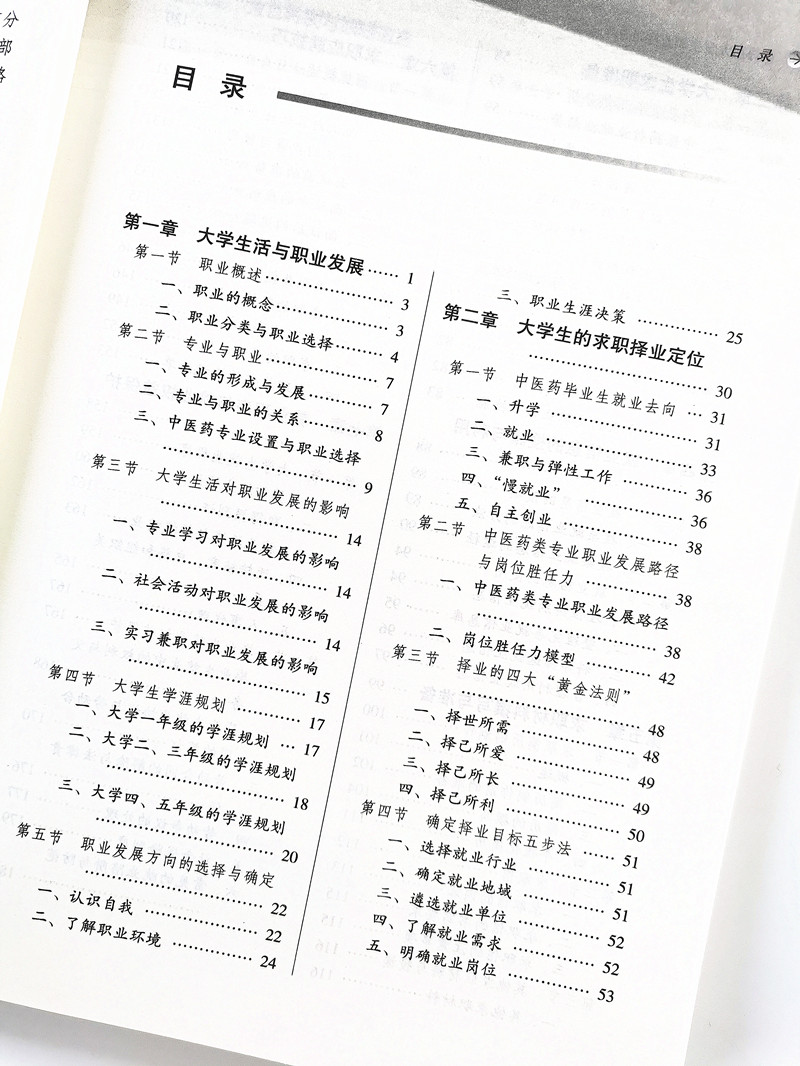 分
部
目 录
目 录
第一章 大学生活与职业发展…… 1
第一节 职业概述…………………… 3
一、职业的概念………………… 3
二、职业分类与职业选择……… 4
第二节 专业与职业………………… 7
一、专业的形成与发展………… 7
二、专业与职业的关系………… 8
三、中医药专业设置与职业选择
………………………………… 9
第三节 大学生活对职业发展的影响
………………………………… 14
一、专业学习对职业发展的影响
………………………………… 14
二、社会活动对职业发展的影响
………………………………… 14
三、实习兼职对职业发展的影响
………………………………… 15
第四节 大学生学涯规划 ………… 17
一、大学一年级的学涯规划 … 17
二、大学二、三年级的学涯规划
………………………………… 18
三、大学四、五年级的学涯规划
………………………………… 20
第五节 职业发展方向的选择与确定
………………………………… 22
一、认识自我 ………………… 22
二、了解职业环境 …………… 24
三、职业生涯决策 …………… 25
第二章 大学生的求职择业定位
………………………………… 30
第一节 中医药毕业生就业去向 … 31
一、升学 ……………………… 31
二、就业 ……………………… 33
三、兼职与弹性工作 ………… 36
四、“慢就业” ………………… 36
五、自主创业 ………………… 38
第二节 中医药类专业职业发展路径
与岗位胜任力 …………… 38
一、中医药类专业职业发展路径
………………………………… 38
二、岗位胜任力模型 ………… 42
第三节 择业的四大“黄金法则”
………………………………… 48
一、择世所需 ………………… 48
二、择己所爱 ………………… 49
三、择己所长 ………………… 49
四、择己所利 ………………… 50
第四节 确定择业目标五步法 …… 51
一、选择就业行业 …………… 51
二、确定就业地域 …………… 51
三、遴选就业单位 …………… 52
四、了解就业需求 …………… 52
五、明确就业岗位 …………… 53